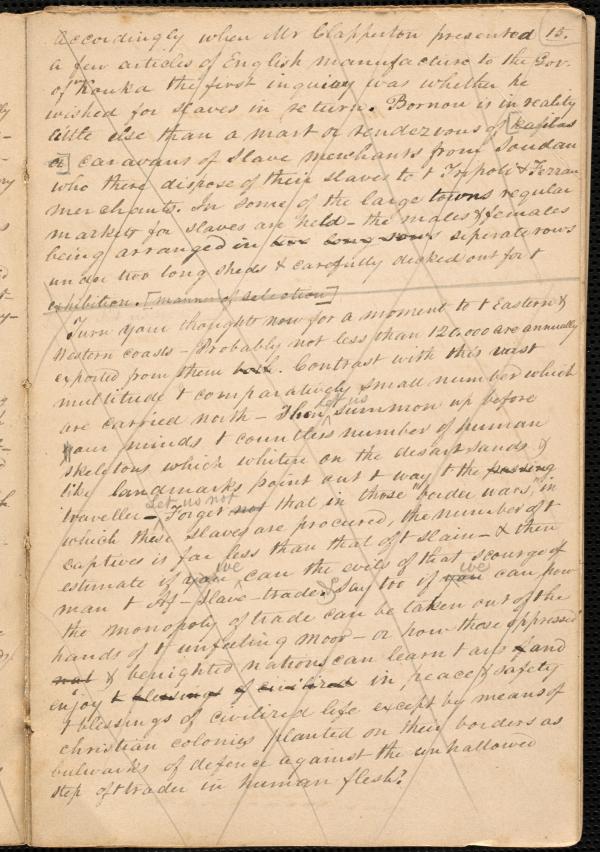 Accordingly when Mr Clapperton presented 15.
a few articles of English manufacture to the Gov-
of Kouka the first inquiry was whether he
wished for slaves in return. Bornou is in reality
little else than a mart or rendezvous of [kafilas
or] caravans of Slave merchants from Soudan
who there dispose of their slaves to t Tripoli & Fezzan
merchants. In some of the large towns regular
markets for slaves are held - the males & females
being arranged in two long rows seperate rows
under two long sheds & carefully decked out for t
exhibition. [manner of selection]
Turn your thoughts now for a moment to t Eastern &
Western coasts - Probably not less than 120,000 are annually
exported from them both. Contrast with this vast
multitude t comparatively small number which
are carried north - Then let us summon up before
our minds t countless number of human
skeletons which whiten on the desart sands &
like landmarks point out t way t the passing
traveller - Let us not Forget not that in those "border wars," in
which these slaves are procured, the number of t
captives is far less than that of t slain - & then
estimate if you we can the evils of that scourge of
man t Af - Slave-trade. Say too if you we can how
the monopoly of trade can be taken out of the
hands of t unfeeling Moor - or how those oppressed
and & benighted nations can learn t arts & and
enjoy t blessings of civilized in, peace & safety
t blessings of civilized life except by means of
christian colonies planted on their borders as
bulwarks of defence against the unhallowed
step of t trader in human flesh?